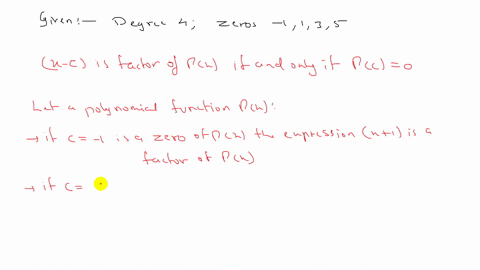 Given:- Degree 4; zeros -1, 1, 3, 5
(x-c) is factor of P(x) if and only if P(c)=0
Let a polynomial function P(x):
→ if c=-1 is a zero of P(x) the expression (x+1) is a
factor of P(x)
→ if c=